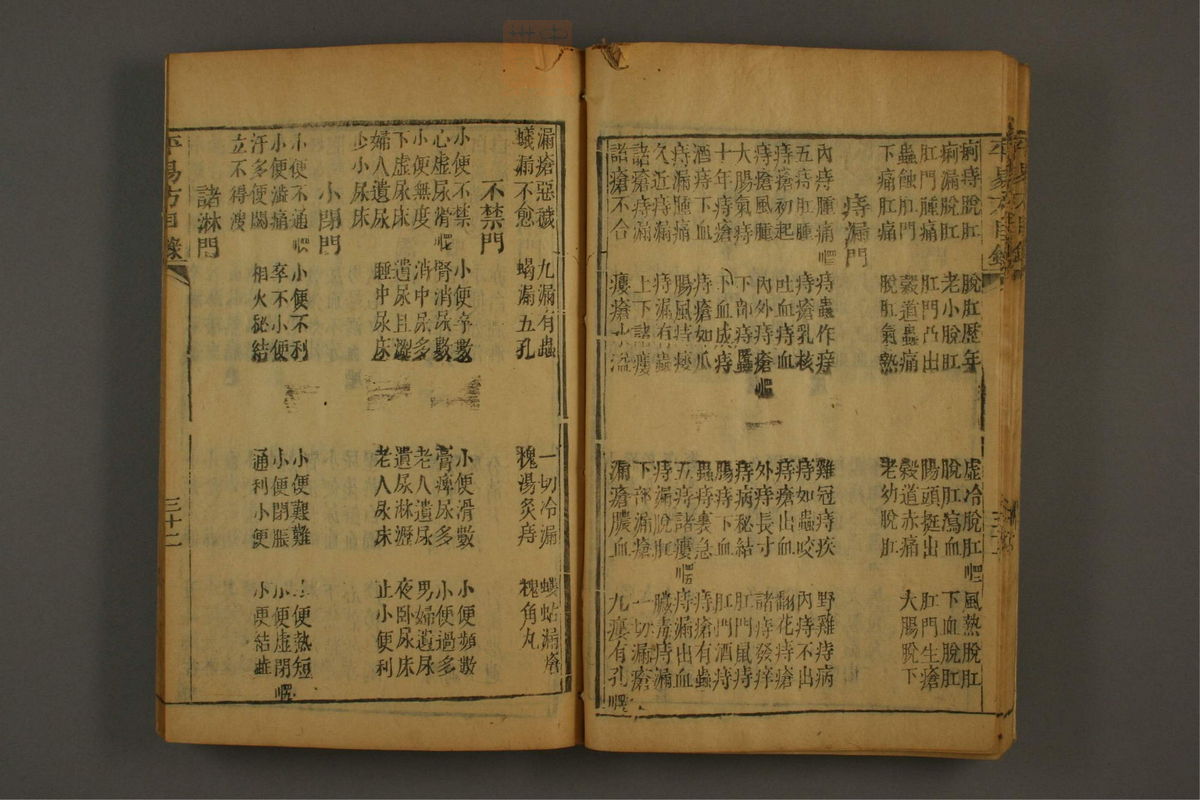 平易方目錄
痢痔脫肛 脫肛歷年 虛冷脫肛 風熱脫肛
痢漏脫肛 老小脫肛 脫肛瀉血 下血脫肛
肛門腫痛 肛門凸出 腸頭挺出 肛門生瘡
蟲蝕肛門 穀道蟲痛 穀道赤痛 大腸脫下
下痛肛痛 脫肛氣熱 老幼脫肛
痔漏門
內痔腫痛 痔蟲作痒 雞冠痔疾 野雞痔病
五痔肛腫 痔瘡乳核 痔如蟲咬 內痔不出
痔瘡初起 吐血痔血 痔瘡出血 翻花痔瘡
痔瘡風腫 內外痔瘡 外痔長寸 諸痔發痒
大腸氣痔 下部痔䘌 痔病秘結 肛門鼠痔
十年痔瘡 下血成痔 腸痔下血 肛門酒痔
酒痔下血 痔瘡如瓜 蟲痔裏急 痔瘡有蟲
痔漏腫痛 腸風痔瘻 五痔諸瘻 痔漏出血
久近痔漏 痔漏有蟲 痔漏脫肛 臟毒痔漏
諸瘡痔漏 上下諸瘻 下部漏瘡 一切漏瘡
諸瘡不合 瘻瘡水溢 漏瘡膿血 九瘻有孔
漏瘡惡穢 九漏有蟲 一切冷漏 螻蛄漏瘡
蟻漏不愈 蝎漏五孔 槐湯灸痔 槐角丸
不禁門
小便不禁 小便卒數 小便滑數 小便頻數
心虛尿滑 腎消尿數 膏痺尿多 小便過多
小便無度 消中尿多 老人遺尿 男婦遺尿
下虛尿床 遺尿且澀 遺尿淋瀝 夜臥尿床
婦人遺尿 睡中尿床 老人尿床 止小便利
少小尿床
小閉門
小便不通 小便不利 小便艱難 小便熱短
小便澁痛 卒不小便 小便閉脹 小便虛閉
汗多便闕 相火秘結 通利小便 小便結澁
立不得溲
諸淋門
平易方目錄 三十二